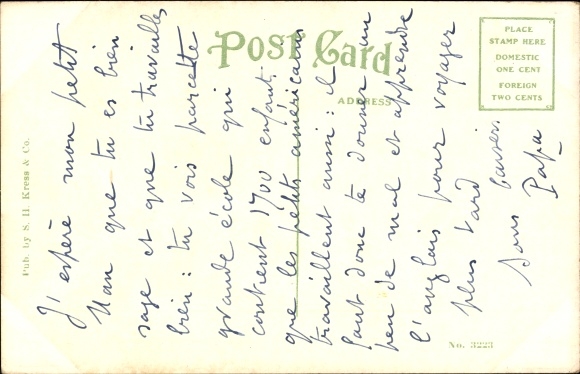 Post Card
ADDRESS
PLACE
STAMP HERE
DOMESTIC
ONE CENT
FOREIGN
TWO CENTS
Pub. by S. H. Kress & Co.
No. 3223
J'espère mon petit
Man que tu es bien
sage et que tu travailles
bien : tu vois par cette
grande école qui
contient 1700 enfants
que les petits américains
travaillent aussi : il
faut donc te donner un
peu de mal et apprendre
l'anglais pour voyager
plus tard
Papa